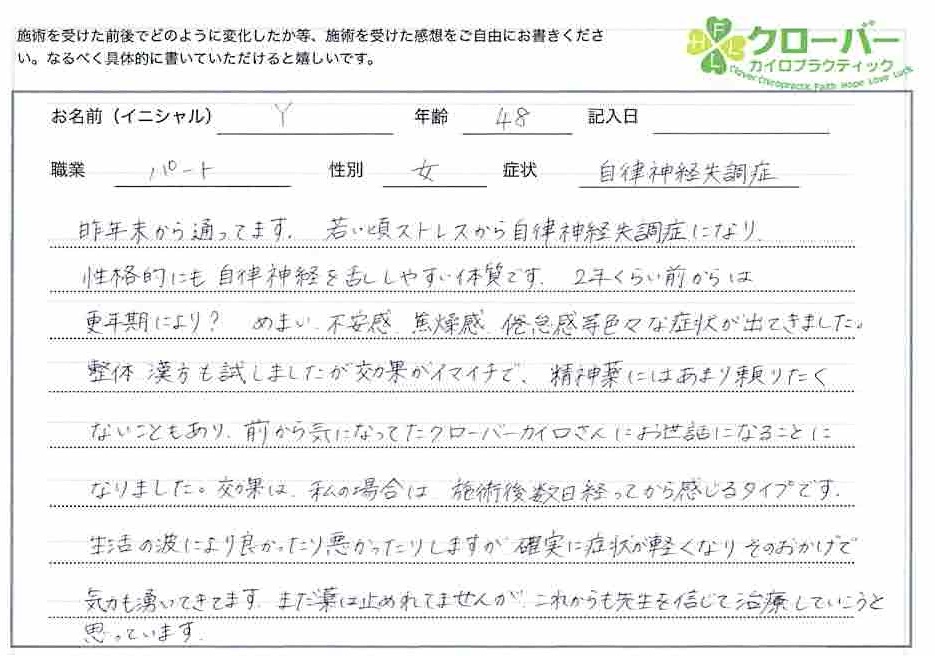 施術を受けた前後でどのように変化したか等、施術を受けた感想をご自由にお書きくださ
い。なるべく具体的に書いていただけると嬉しいです。
FHLL
クローバー
カイロプラクティック
Clover Chiropractic Faith Hope Love Luck
お名前（イニシャル） Y 年齢 48 記入日
職業 パート 性別 女 症状 自律神経失調症
昨年末から通ってます。 若い頃ストレスから自律神経失調症になり、
性格的にも自律神経を乱しやすい体質です。 2年くらい前からは
更年期により? めまい、不安感、焦燥感、倦怠感等色々な症状が出てきました。
整体 漢方も試しましたが効果がイマイチで、 精神薬にはあまり頼りたく
ないこともあり、前から気になってたクローバーカイロさんにお世話になることに
なりました。効果は、私の場合は、施術後数日経ってから感じるタイプです。
生活の波により良かったり悪かったりしますが 確実に症状が軽くなり そのおかげで
気力も湧いてきてます。まだ薬は止めれてませんが、これからも先生を信じて治療していこうと
思っています。